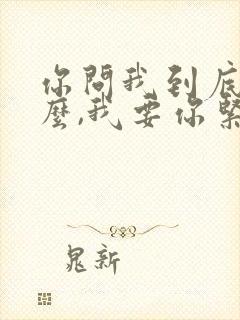 你問我到底
麼,我要你緊
晁新